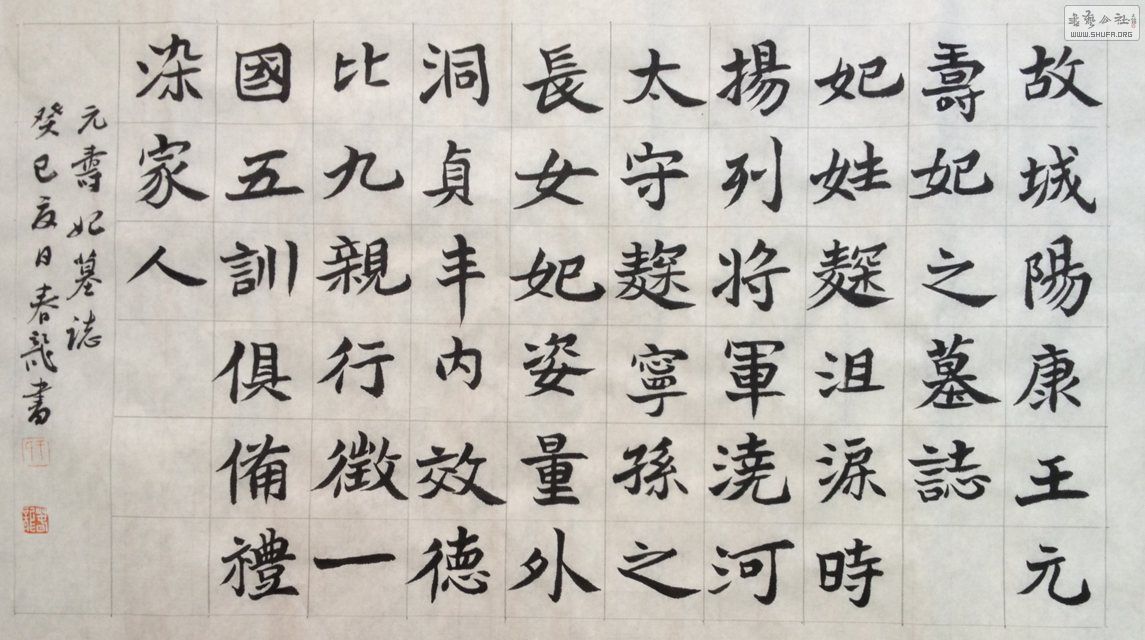 故城陽康王元
壽妃之墓誌
妃姓麴沮淚時
揚列將軍澆河
太守麴寧孫之
長女妃姿量外
洞貞丰內效德
比九親行徵一
國五訓俱備禮
染家人
元壽妃墓誌
癸巳夏日春龍書
書藝公社
WWW.SHUFA.ORG